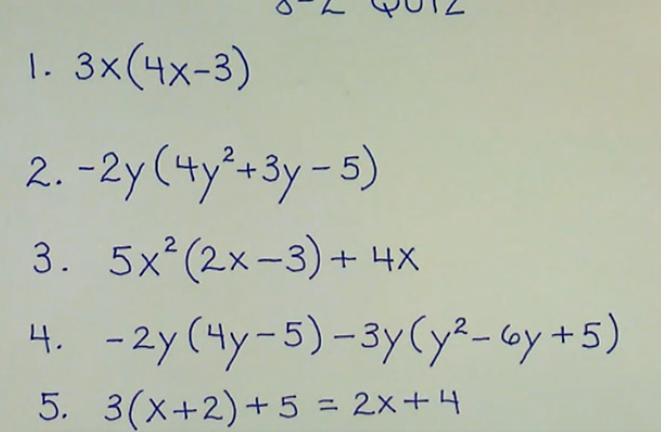 8-2 QUIZ
1. 3x(4x-3)
2. -2y(4y²+3y-5)
3. 5x²(2x-3)+4x
4. -2y(4y-5)-3y(y²-6y+5)
5. 3(x+2)+5 = 2x+4